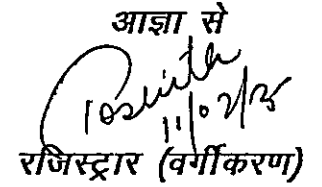 आज्ञा से
11/02/25
रजिस्ट्रार (वर्गीकरण)